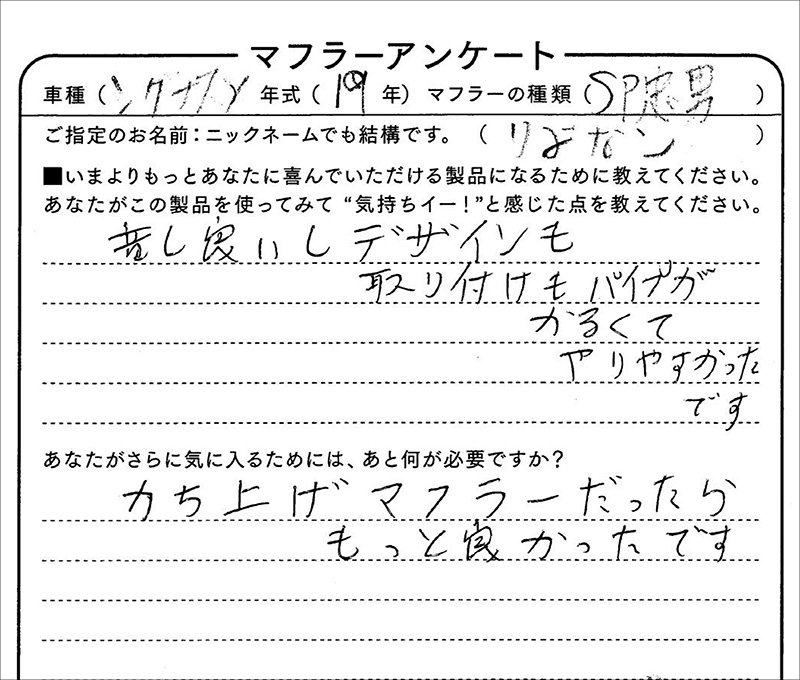 マフラーアンケート
車種( シグナスX 年式( 19 年) マフラーの種類( SP忠男 )
ご指定のお名前:ニックネームでも結構です。( りよなン )
■いまよりもっとあなたに喜んでいただける製品になるために教えてください。
あなたがこの製品を使ってみて“気持ちイー!”と感じた点を教えてください。
音し良いしデザインも
取り付けもパイプが
かるくて
やりやすかった
です
あなたがさらに気に入るためには、あと何が必要ですか?
カち上げマフラーだったら
もっと良かったです